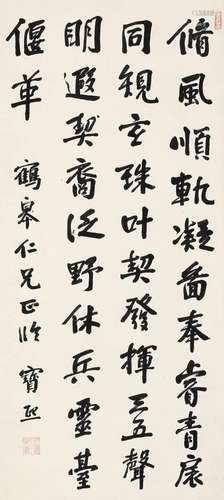 脩風順軌凝圖奉睿青扆
同規玄珠叶契發揮三五聲
明遐契裔泛野休兵靈臺
偃革
鶴皋仁兄正臨 寶熙